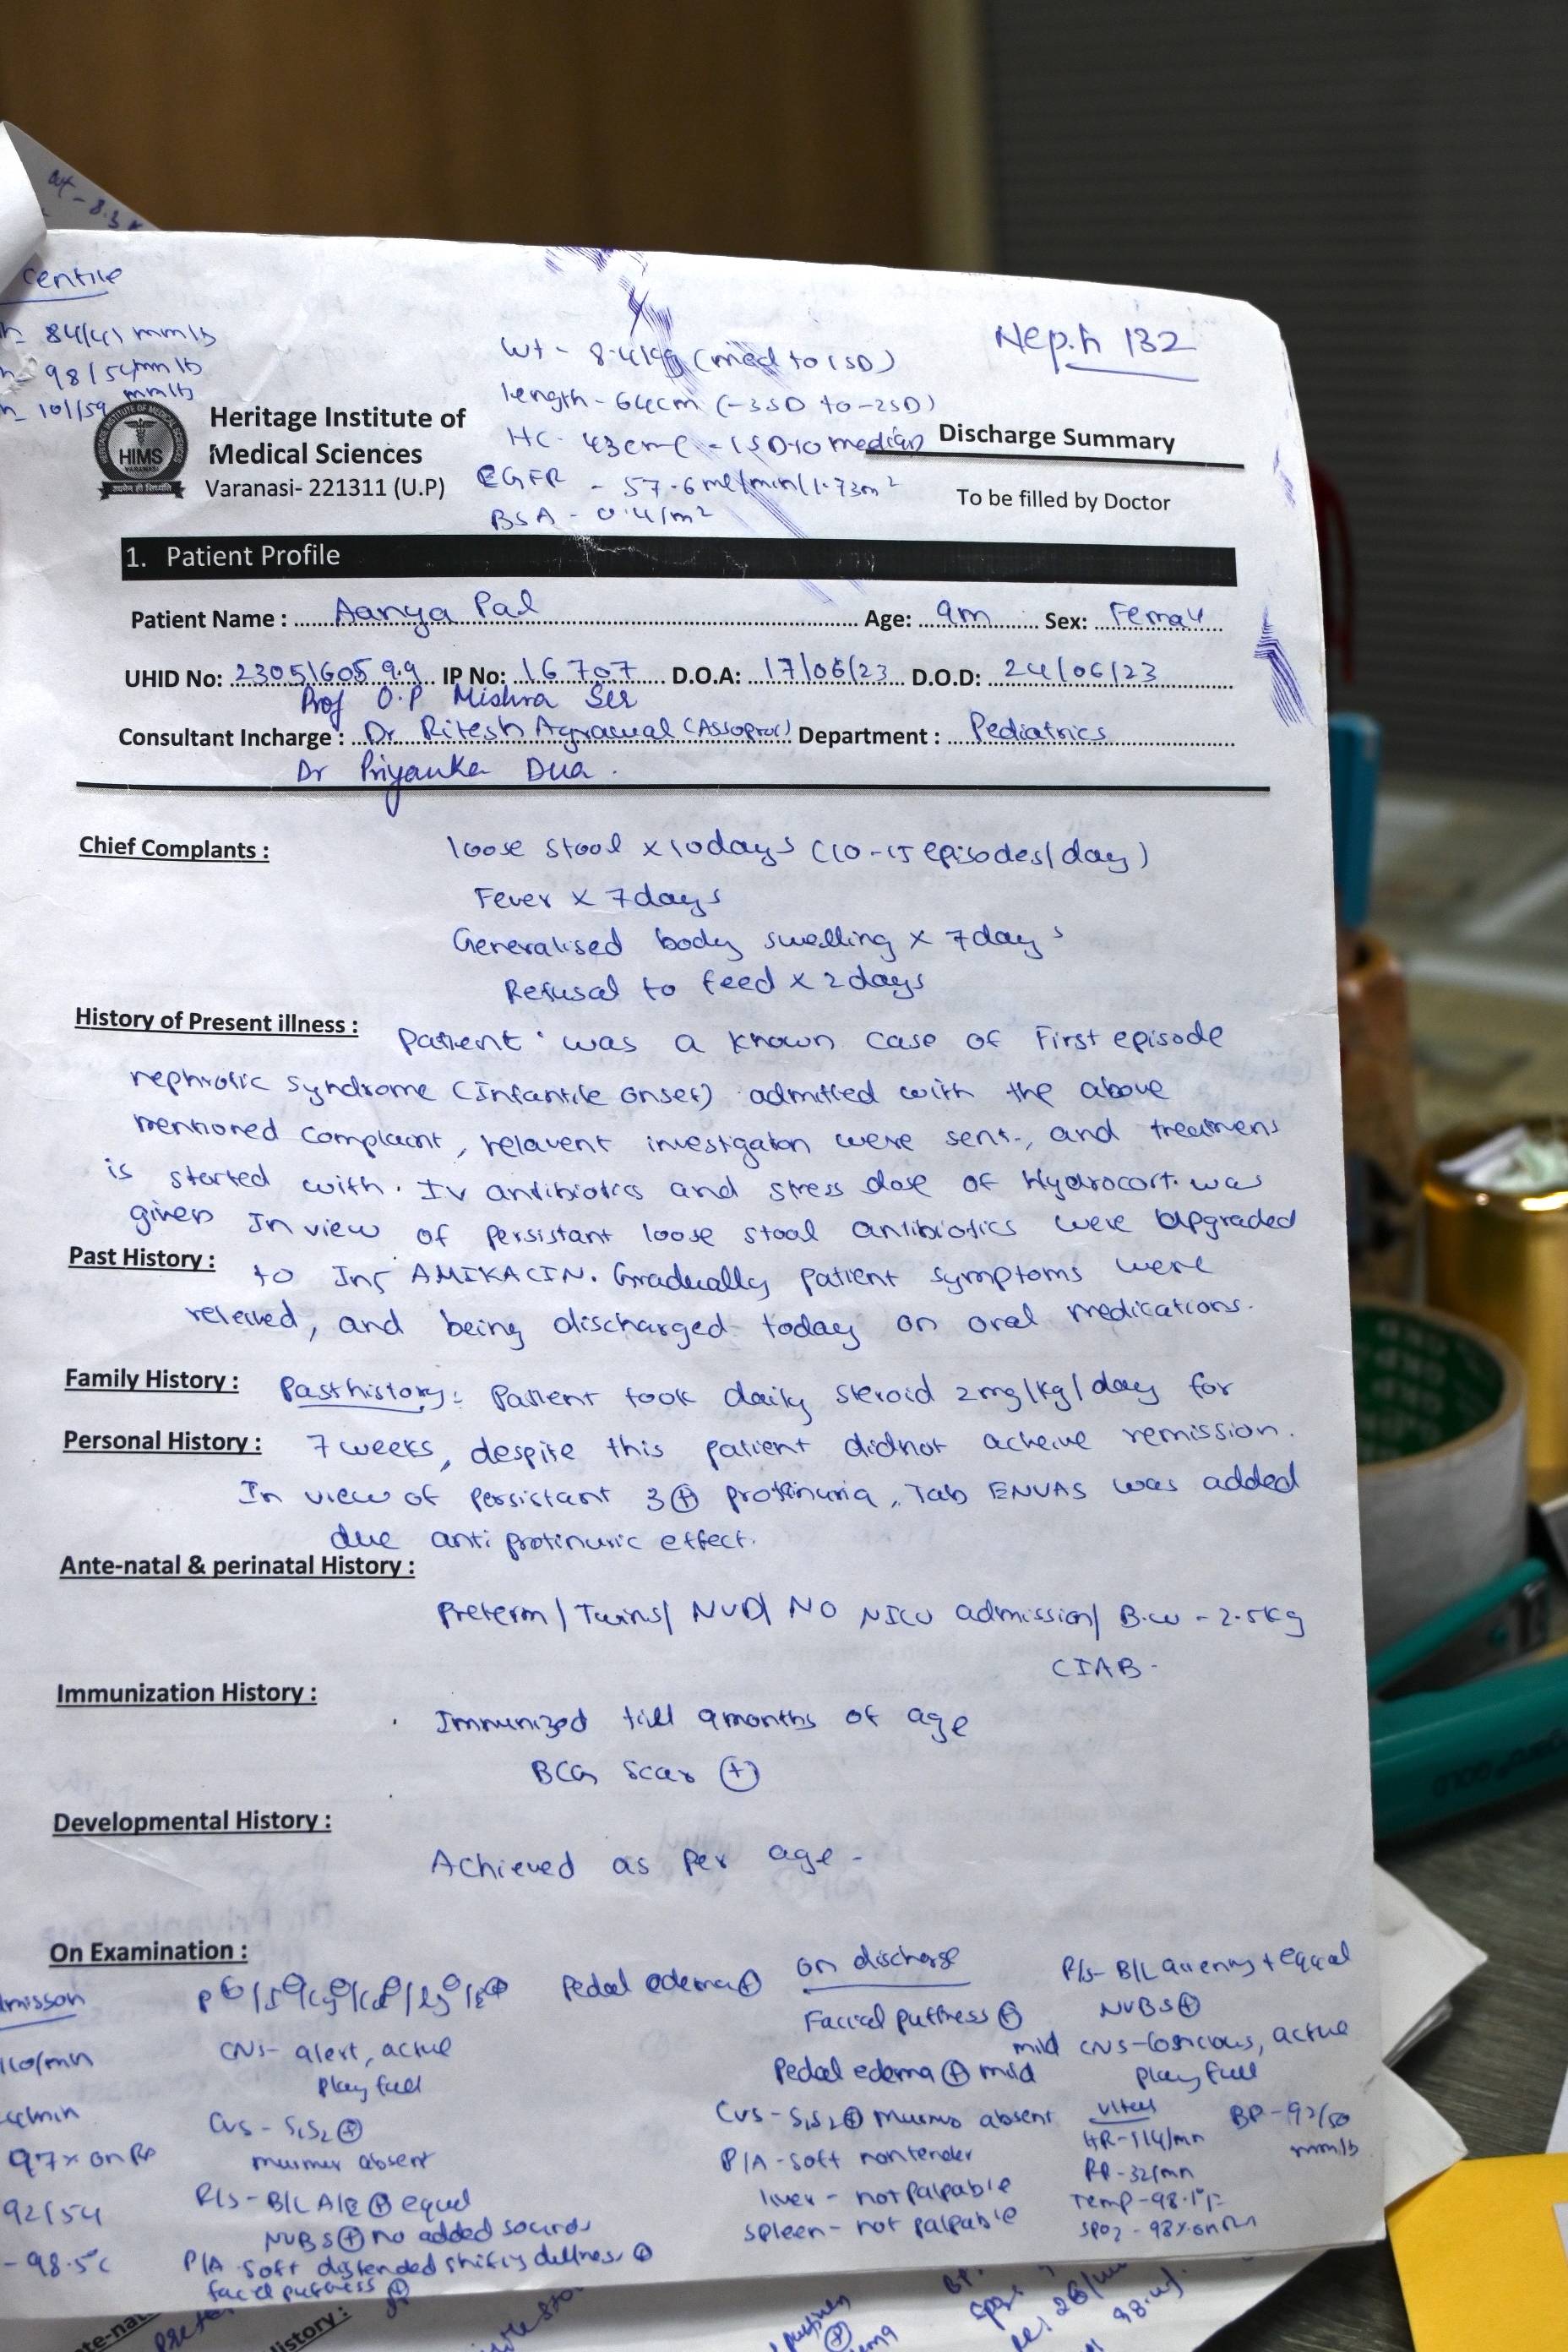 wt - 8.3 K
centile
84/41 mmHg
98/54 mmHg
101/59 mmHg
Neph 132
Wt - 8.4 kg (med to 1SD)
length - 64cm (-3SD to -2SD)
HC - 43cm (-1SD to median)
EGFR - 57.6 ml/min/1.73m²
BSA - 0.4/m²
HERITAGE INSTITUTE OF MEDICAL SCIENCES
HIMS
VARANASI
Heritage Institute of
Medical Sciences
Varanasi- 221311 (U.P)
Discharge Summary
To be filled by Doctor
1. Patient Profile
Patient Name : Aanya Pal Age: 9m Sex: Female
UHID No: 2305160599 IP No: 16707 D.O.A: 17/06/23 D.O.D: 24/06/23
Prof O.P Mishra Sir
Consultant Incharge : Dr. Ritesh Agrawal (Assoprof) Department : Pediatrics
Dr Priyanka Dua.
Chief Complants : loose stool x 10days (10-15 episodes/day)
Fever x 7days
Generalised body swelling x 7days
Refusal to feed x 2days
History of Present illness : Patient was a known case of First episode
nephrotic syndrome (Infantile onset) admitted with the above
mentioned complaint, relavent investigation were sent, and treatment
is started with. IV antibiotics and stress dose of Hydrocort. was
given In view of persistant loose stool antibiotics were upgraded
Past History : to Inj AMIKACIN. Gradually patient symptoms were
releived, and being discharged today on oral medications.
Family History : Past history: Patient took daily steroid 2mg/kg/day for
Personal History : 7 weeks, despite this patient didnot acheive remission.
In view of Persistant 3⊕ protinuria, Tab ENVAS was added
due anti protinuric effect.
Ante-natal & perinatal History :
Preterm/ Twins/ NVD/ NO NICU admission/ B.w - 2.5kg
CIAB -
Immunization History :
Immunized till 9months of age
BCG Scar ⊕
Developmental History :
Achieved as per age -
On Examination :
Pedal edema⊕
CNS- alert, active
Play full
CVS - S₁S₂⊕
murmur absent
R/S - B/L A/E ⊕ equal
NVBS⊕ no added sounds
P/A - Soft distended shifting dullness ⊕
facial puffiness ⊕
110/min
97% on RA
92/54
- 98.5°C
on discharge
Facial puffiness ⊕
mild
Pedal edema ⊕ mild
CVS - S₁S₂⊕ murmur absent
P/A - Soft nontender
liver - not palpable
spleen - not palpable
R/S- B/L airentry + equal
NVBS⊕
CNS- active
play full
vitals
HR-114/min
RR-32/min
Temp-98.1°F
SPO2 - 98% on RA
BP-92/50
mmHg